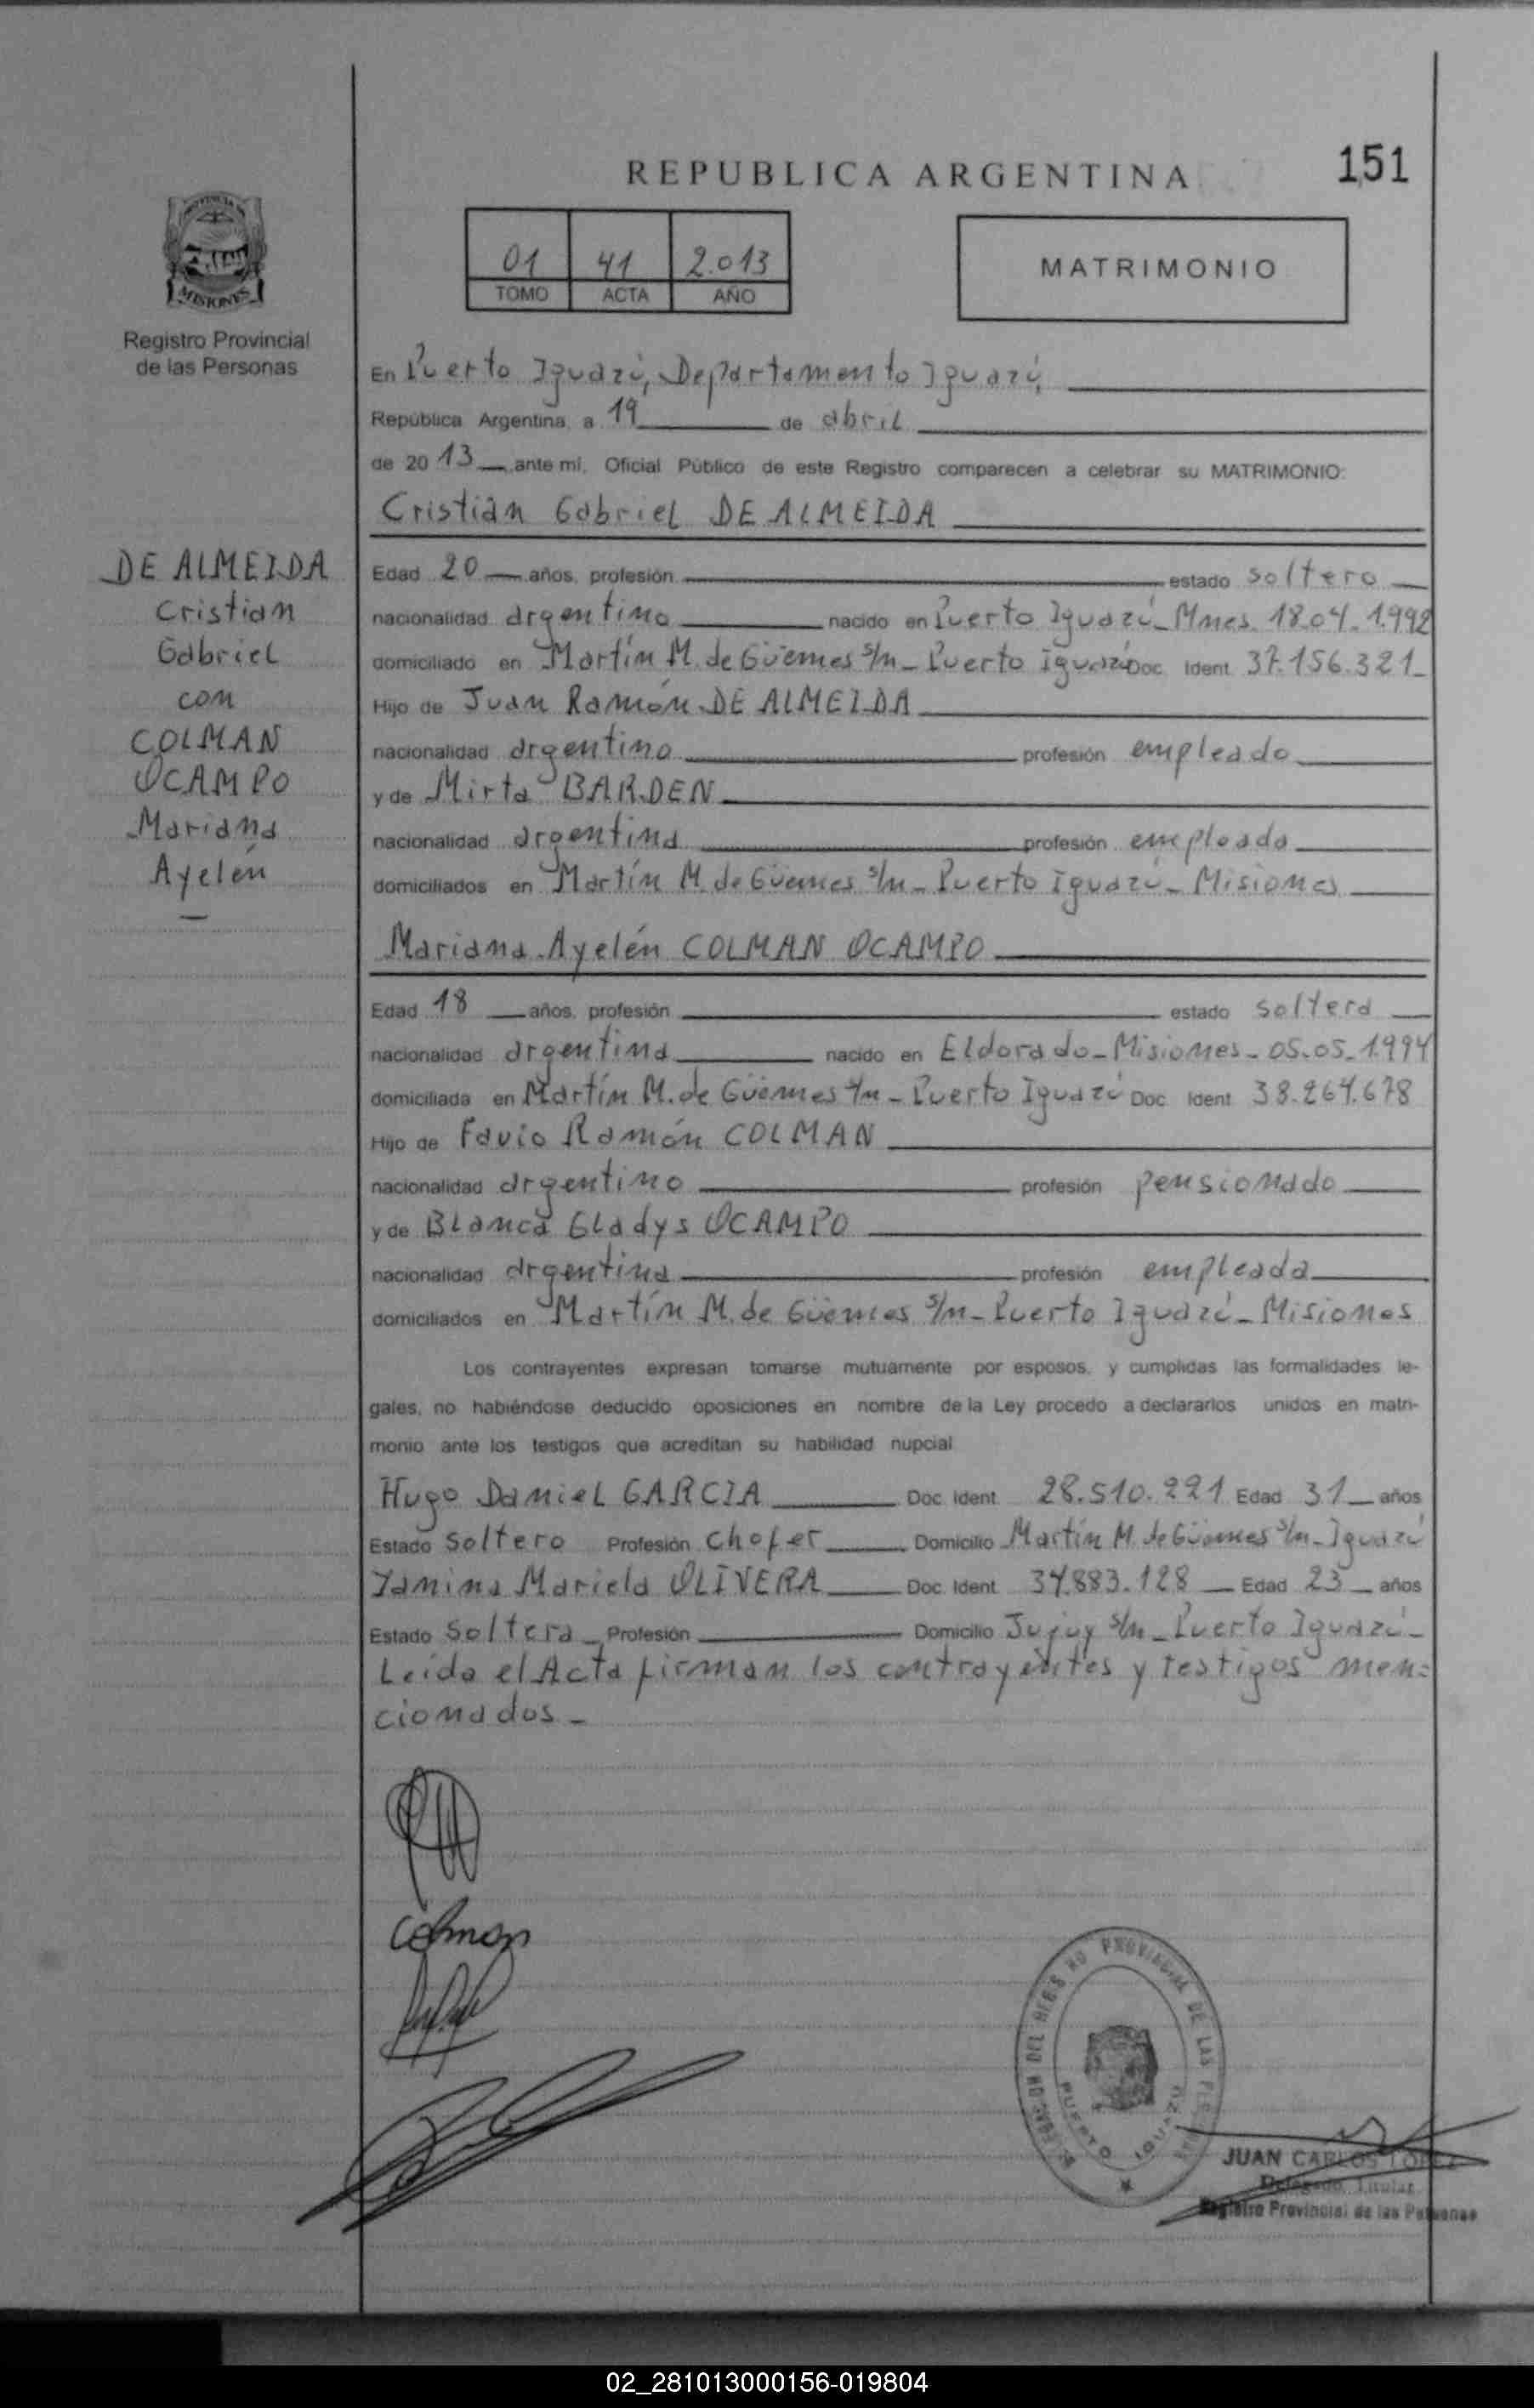 REPUBLICA ARGENTINA
151
PROVINCIA DE
MISIONES
Registro Provincial
de las Personas
01 41 2.013
TOMO ACTA AÑO
MATRIMONIO
En Puerto Iguazú, Departamento Iguazú
República Argentina, a 19 de abril
de 2013 ante mí, Oficial Público de este Registro comparecen a celebrar su MATRIMONIO:
Cristian Gabriel DE ALMEIDA
DE ALMEIDA
Cristian
Gabriel
con
COLMAN
OCAMPO
Mariana
Ayelén
Edad 20 años, profesión estado soltero
nacionalidad argentino nacido en Puerto Iguazú_Mnes. 18.04.1.992
domiciliado en Martín M. de Güemes s/n_Puerto Iguazú Doc. Ident. 37.156.321_
Hijo de Juan Ramón DE ALMEIDA
nacionalidad argentino profesión empleado
y de Mirta BARDEN
nacionalidad argentina profesión empleada
domiciliados en Martín M. de Güemes s/n_Puerto Iguazú_Misiones
Mariana Ayelén COLMAN OCAMPO
Edad 18 años, profesión estado soltera
nacionalidad argentina nacido en Eldorado_Misiones_05.05.1.994
domiciliada en Martín M. de Güemes s/n_Puerto Iguazú Doc. Ident. 38.264.678
Hijo de Favio Ramón COLMAN
nacionalidad argentino profesión pensionado
y de Blanca Gladys OCAMPO
nacionalidad argentina profesión empleada
domiciliados en Martín M. de Güemes s/n_Puerto Iguazú_Misiones
Los contrayentes expresan tomarse mutuamente por esposos, y cumplidas las formalidades le-
gales, no habiéndose deducido oposiciones en nombre de la Ley procedo a declararlos unidos en matri-
monio ante los testigos que acreditan su habilidad nupcial
Hugo Daniel GARCIA Doc. Ident. 28.510.221 Edad 31 años
Estado soltero Profesión chofer Domicilio Martín M. de Güemes s/n_Iguazú
Yanina Mariela OLIVERA Doc. Ident. 34.883.128 Edad 23 años
Estado soltera Profesión Domicilio Jujuy s/n_Puerto Iguazú_
Leída el Acta firman los contrayentes y testigos men=
cionados_
Colman
DEL REGISTRO PROVINCIAL DE LAS
PUERTO IGUAZU
JUAN CARLOS LOPEZ
Delegado Titular
Registro Provincial de las Personas
02_281013000156-019804